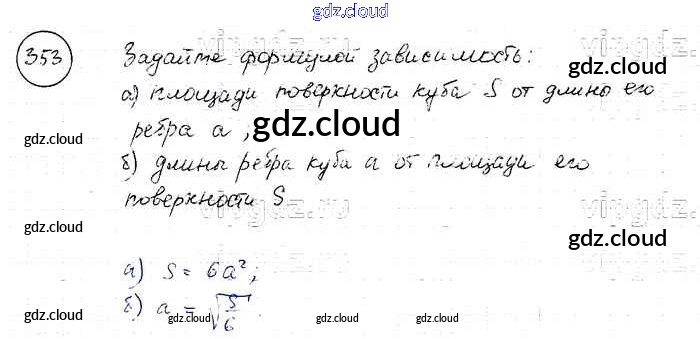 gdz.cloud
353
Задайте формулой зависимость:
а) площади поверхности куба S от длины его
ребра a,
gdz.cloud
gdz.cloud
gdz.cloud
б) длины ребра куба a от площади его
поверхности S
vingdz.ru
vingdz.ru
gdz.cloud
gdz.cloud
а) S = 6a²;
б) a = √(S/6)
gdz.cloud
gdz.cloud
gdz.cloud
gdz.cloud
gdz.cloud